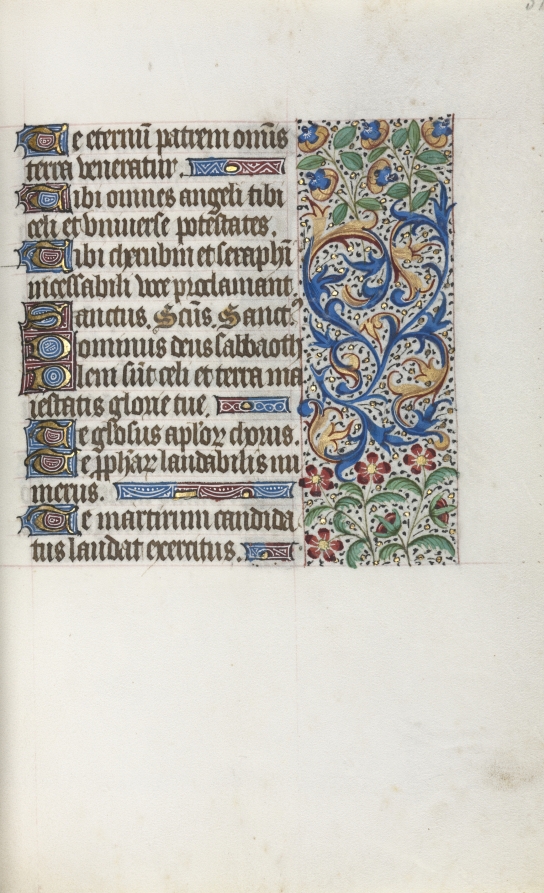 Te eternū patrem omīs
terra veneratur.
Tibi omnes angeli tibi
celi et vniuerse potestates.
Tibi cherubin et seraphī
incessabili voce proclamant
Sanctus. Scūs Sanct⁹
Dominus deus sabbaoth
Pleni sūt celi et terra ma
iestatis glorie tue.
Te gl'osus apl'oꝝ chorus.
Te ꝓphaꝝ laudabilis nu
merus.
Te martirum candida
tus laudat exercitus.